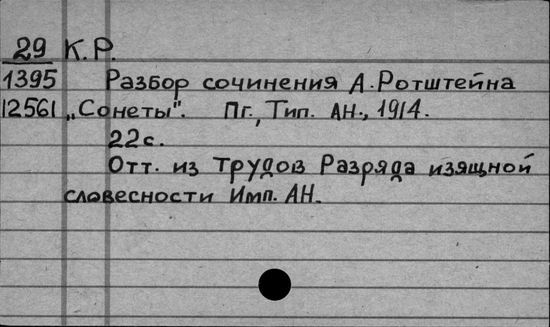 29 К.Р.
1395 Разбор сочинения А.Ротштейна
12561 „Сонеты". Пг., Тип. АН., 1914.
22с.
Отт. из Трудов Разряда изящной
словесности Имп. АН.